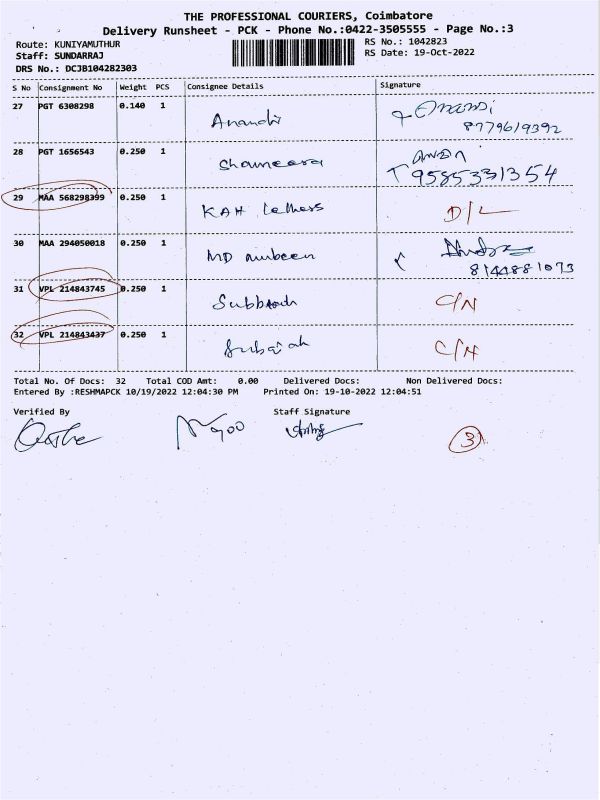 THE PROFESSIONAL COURIERS, Coimbatore
Delivery Runsheet - PCK - Phone No.:0422-3505555 - Page No.:3
Route: KUNIYAMUTHUR
Staff: SUNDARRAJ
DRS No.: DCJB104282303
RS No.: 1042823
RS Date: 19-Oct-2022
S No Consignment No Weight PCS Consignee Details Signature
27 PGT 6308298 0.140 1 Anandi
8779619392
28 PGT 1656543 0.250 1 Shameera
9585331354
29 MAA 568298399 0.250 1 KAH Lethers D/L
30 MAA 294050018 0.250 1 MD mubeen
8144881073
31 VPL 214843745 0.250 1 C/N
32 VPL 214843437 0.250 1 C/N
Total No. Of Docs: 32 Total COD Amt: 0.00 Delivered Docs: Non Delivered Docs:
Entered By :RESHMAPCK 10/19/2022 12:04:30 PM Printed On: 19-10-2022 12:04:51
Verified By Staff Signature
3